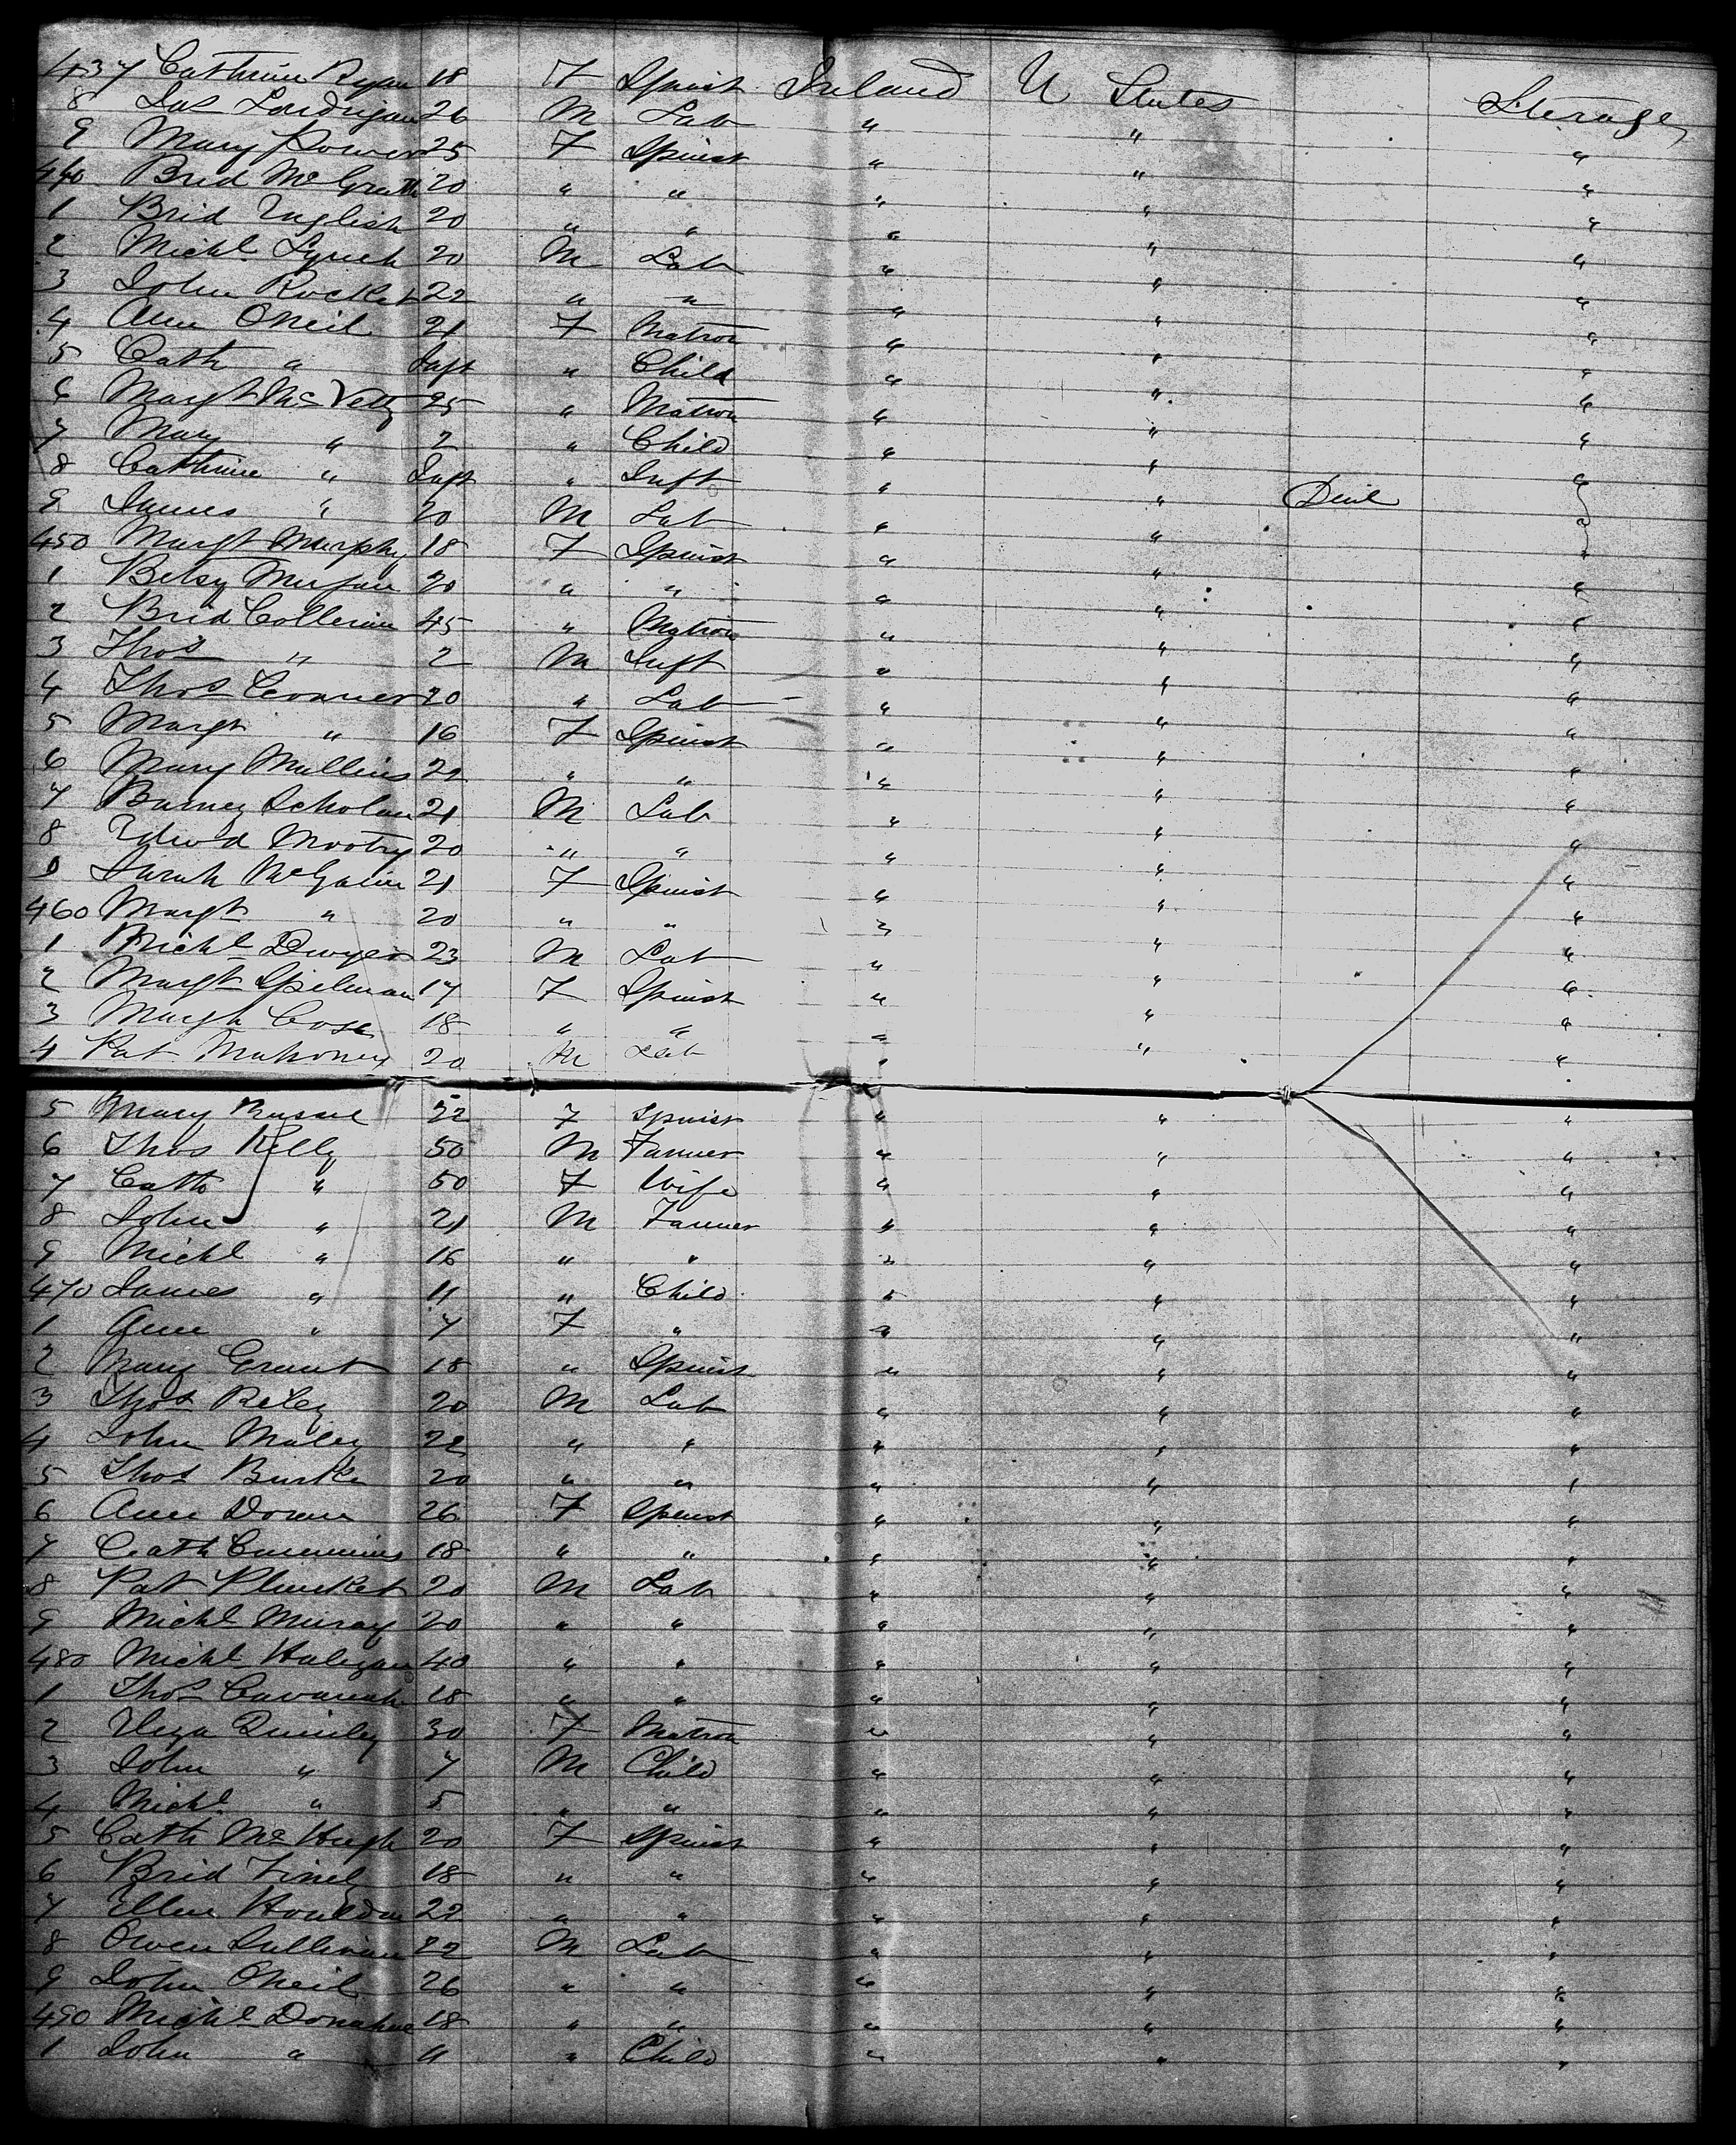 437 Cathrine Ryan 18 F Spinst Ireland U States Sterage
8 Jas Londrigan 26 M Lab " " "
9 Mary Power 25 F Spinst " " "
440 Brid McGrath 20 " " " " "
1 Brid English 20 " " " " "
2 Michl Lynch 20 M Lab " " "
3 John Rocket 22 " " " " "
4 Ann ONeil 21 F Matron " " "
5 Cath " Inft " Child " " "
6 Margt McVetty 25 " Matron " " "
7 Mary " 2 " Child " " "
8 Cathrine " Inft " Inft " " "
9 James " 20 M Lab " "
450 Margt Murphy 18 F Spinst " " "
1 Betsy 20 " " " " "
2 Brid Colleran 45 " Matron " " "
3 Thos " 2 M Inft " " "
4 Thos Conner 20 " Lab " " "
5 Margt " 16 F Spinst " " "
6 Mary Mullins 22 " " " " "
7 Barney Scholan 21 M Lab " " "
8 Edwd 20 " " " " "
9 Sarah 21 F Spinst " " "
460 Margt " 20 " " " " "
1 Michl Dwyer 23 M Lab " " "
2 Margt Spilman 17 F Spinst " " "
3 Margt 18 " " " " "
4 Pat Mahoney 20 M Lab " " "
5 Mary Russel 22 F Spinst " " "
6 Thos Kelly 50 M Farmer " " "
7 Cath " 50 F Wife " " "
8 John " 21 M Farmer " " "
9 Michl " 16 " " " " "
470 James " 11 " Child " " "
1 Ann " 7 F " " " "
2 Mary Grant 18 " Spinst " " "
3 Thos Riley 20 M Lab " " "
4 John Maley 22 " " " " "
5 Thos Burke 20 " " " " "
6 Ann Doran 26 F Spinst " " "
7 Cath Cummins 18 " " " " "
8 Pat Plunket 20 M Lab " " "
9 Michl Muray 20 " " " " "
480 Michl Haligan 40 " " " " "
1 Thos Cavanah 18 " " " " "
2 Eliza Quinley 30 F Matron " " "
3 John " 7 M Child " " "
4 Michl " 5 " " " " "
5 Cath McHugh 20 F Spinst " " "
6 Brid Finely 18 " " " " "
7 Ellen 22 " " " " "
8 Owen Sullivan 22 M Lab " " "
9 John ONeil 26 " " " " "
490 Michl Donahue 18 " " " " "
1 John " 11 " Child " " "